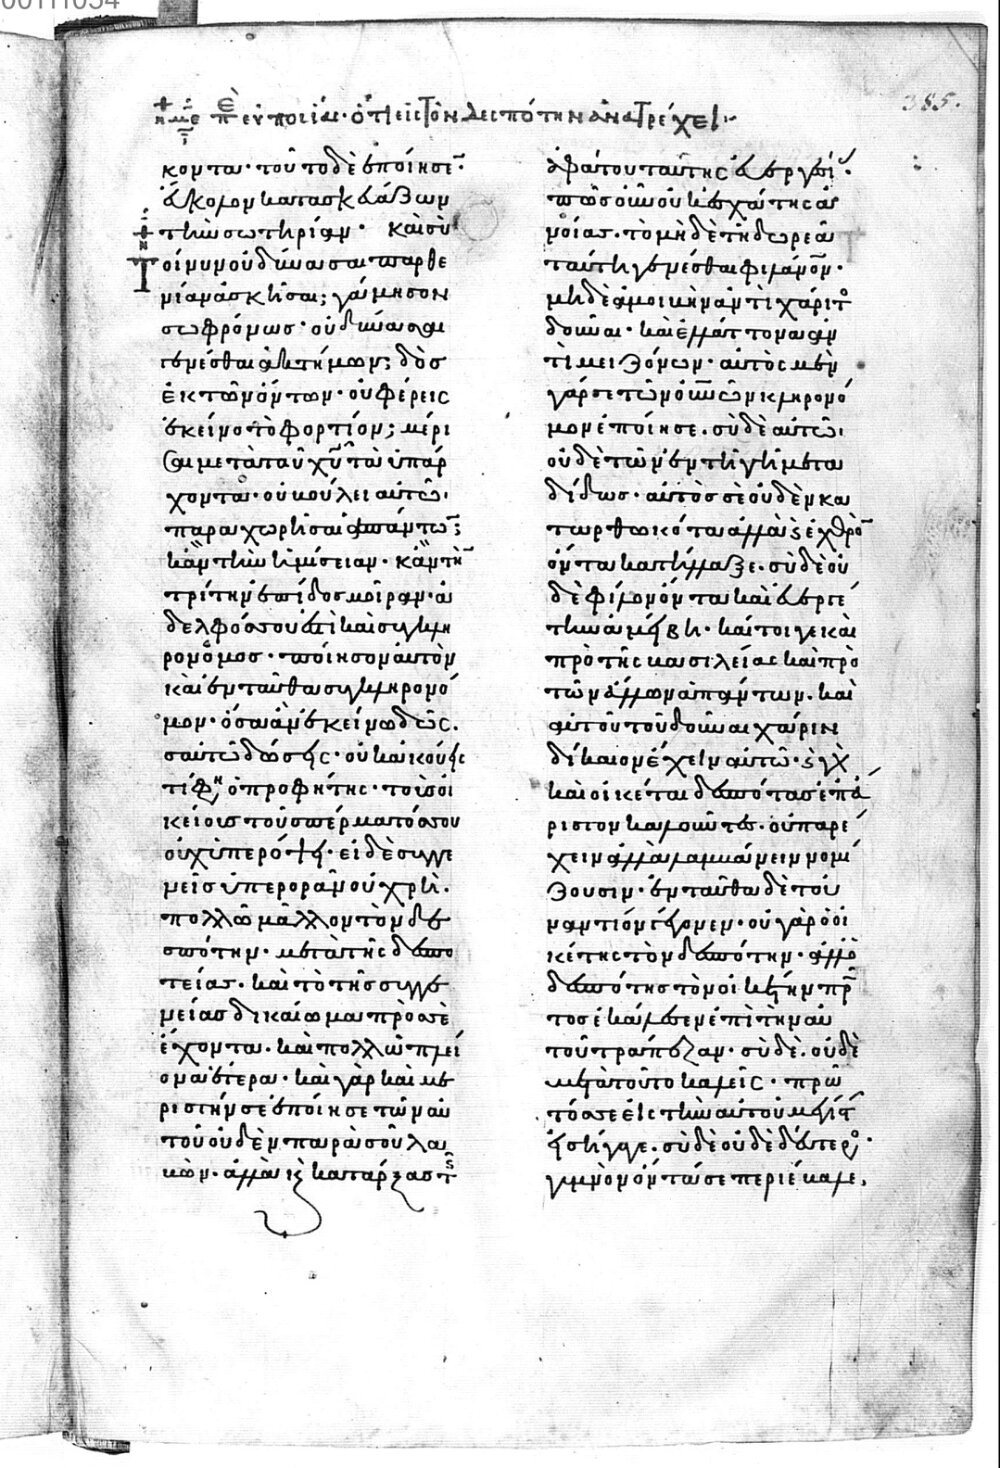 385.
εὐποιΐας· ὅτι εἰς τὸν δεσπότην ἀνατρέχει·
κοντα· τοῦτο δὲ ἐποίησε·
εὔκολον κατασκευάζων
τὴν σωτηρίαν· καὶ σὺ
τοίνυν οὐ δύνασαι παρθε
νίαν ἀσκῆσαι; γάμησον
σωφρόνως· οὐ δύνασαι
γενέσθαι ἀκτήμων; δὸς
ἐκ τῶν ὄντων· οὐ φέρεις
ἐκεῖνο τὸ φορτίον; μέρι
σαι μετὰ τοῦ χῦ τὰ ὑπάρ
χοντα· οὐ βούλει αὐτῶ·
παραχωρῆσαι ἁπάντων;
κἂν τὴν ἡμίσειαν· κἂν τὴν
τρίτην ἐπίδος μοῖραν· ἀ
δελφός σου ἐστὶ καὶ συγκλη
ρονόμος· ποίησον αὐτὸν
καὶ ἐνταῦθα συγκληρονό
μον· ὅσα ἂν ἐκείνω δῶς·
σαυτῶ δώσεις· οὐκ ἀκούεις
τί φησιν ὁ προφήτης· τοὺς οἰ
κείους τοῦ σπέρματός σου
οὐχ ὑπερόψει· εἰ δὲ συγγε
νεῖς ὑπερορᾶν οὐ χρὴ·
πολλῶ μᾶλλον τὸν δε
σπότην· μετὰ τῆς δεσπο
τείας· καὶ τὸ τῆς συγγε
νείας δικαίωμα πρὸς σὲ
ἔχοντα· καὶ πολλῶ πλεί
ονα ἕτερα· καὶ γὰρ καὶ με
ριστήν σε ἐποίησε τῶν αὐ
τοῦ οὐδὲν παρὰ σοῦ λα
βὼν· ἀλλὰ καὶ κατάρξας τῆς
ἀφάτου ταύτης εὐεργεσίας·
πῶς οὖν οὐκ ἐσχάτης ἀ
νοίας· τὸ μηδὲ τῆ δωρεᾶ
ταύτη γενέσθαι φιλάνθρωπον·
μηδὲ ἀμοιβὴν ἀντὶ χάριτος
δοῦναι· καὶ ἐλάττονα ἀν
τὶ μειζόνων· αὐτὸς μὲν
γάρ σε τῶν οὐνῶν κληρονό
μον ἐποίησε· σὺ δὲ αὐτῶ·
οὐδὲ τῶν ἐν τῆ γῆ μετα
δίδως· αὐτός σε οὐδὲν κα
τωρθωκότα ἀλλὰ καὶ ἐχθρὸν
ὄντα κατήλλαξε· σὺ δὲ οὐ
δὲ φίλον ὄντα καὶ εὐεργέ
την ἀμείβη· καίτοιγε καὶ
πρὸ τῆς βασιλείας καὶ πρὸ
τῶν ἄλλων ἁπάντων· καὶ
αὐτοῦ τοῦ δοῦναι χάριν
δίκαιον ἔχειν αὐτῶ· καὶ γὰρ
καὶ οἰκέται δεσπότας ἐπ' ἄ
ριστον καλοῦντες· οὐ παρέ
χειν ἀλλὰ λαμβάνειν νομί
ζουσιν· ἐνταῦθα δὲ τοὐ
ναντίον γέγονεν· οὐ γὰρ ὁ οἰ
κέτης τὸν δεσπότην· ἀλλ' ὁ
δεσπότης τὸν οἰκέτην πρῶ
τος ἐκάλεσεν ἐπὶ τὴν αὐ
τοῦ τράπεζαν· σὺ δὲ· οὐδὲ
μετὰ τοῦτο καλεῖς· πρῶ
τός σε εἰς τὴν αὐτοῦ στέγην
εἰσήγαγε· σὺ δὲ οὐδὲ δεύτερος·
γυμνὸν ὄντα σε περιέβαλε·